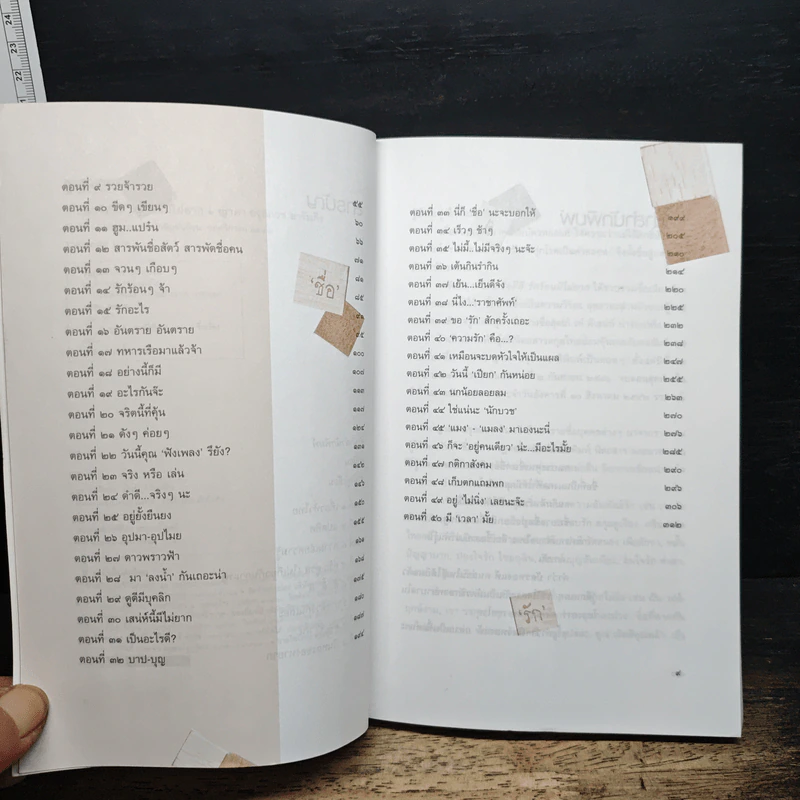 ตอนที่ ๙ รวยจ้ารวย ๕๕
ตอนที่ ๑๐ ขีดๆ เขียนๆ ๖๐
ตอนที่ ๑๑ ฮูม..แปร๋น ๖๖
ตอนที่ ๑๒ สารพันชื่อสัตว์ สารพัดชื่อคน ๗๑
ตอนที่ ๑๓ จวนๆ เกือบๆ ๘๑
ตอนที่ ๑๔ รักร้อนๆ จ้า ๘๕
ตอนที่ ๑๕ รักอะไร ๙๑
ตอนที่ ๑๖ อันตราย อันตราย ๙๕
ตอนที่ ๑๗ ทหารเรือมาแล้วจ้า ๑๐๐
ตอนที่ ๑๘ อย่างนี้ก็มี ๑๐๘
ตอนที่ ๑๙ อะไรกันจ๊ะ ๑๑๒
ตอนที่ ๒๐ จริตนี้ที่คุ้น ๑๑๘
ตอนที่ ๒๑ ดังๆ ค่อยๆ ๑๒๔
ตอนที่ ๒๒ วันนี้คุณ 'ฟังเพลง' รึยัง? ๑๓๑
ตอนที่ ๒๓ จริง หรือ เล่น ๑๔๒
ตอนที่ ๒๔ ดำดี...จริงๆ นะ ๑๔๖
ตอนที่ ๒๕ อยู่ยั้งยืนยง ๑๕๐
ตอนที่ ๒๖ อุปมา-อุปไมย ๑๕๕
ตอนที่ ๒๗ ดาวพราวฟ้า ๑๖๑
ตอนที่ ๒๘ มา 'ลงน้ำ' กันเถอะน่า ๑๖๘
ตอนที่ ๒๙ ดูดีมีบุคลิก ๑๗๕
ตอนที่ ๓๐ เสน่ห์นี้มีไม่ยาก ๑๘๐
ตอนที่ ๓๑ เป็นอะไรดี? ๑๘๗
ตอนที่ ๓๒ บาป-บุญ ๑๙๔
'ชื่อ'
ตอนที่ ๓๓ นี่ก็ 'ชื่อ' นะจะบอกให้
ตอนที่ ๓๔ เร็วๆ ช้าๆ ๒๐๕
ตอนที่ ๓๕ ไม่มี้..ไม่มีจริงๆ นะจ๊ะ ๒๑๐
ตอนที่ ๓๖ เต้นกินรำกิน ๒๑๔
ตอนที่ ๓๗ เย้น...เย็นดีจัง
ตอนที่ ๓๘ นี่ไง...'ราชาศัพท์' ๒๒๕
ตอนที่ ๓๙ ขอ 'รัก' สักครั้งเถอะ ๒๓๒
ตอนที่ ๔๐ 'ความรัก' คือ...? ๒๓๘
ตอนที่ ๔๑ เหมือนจะบดหัวใจให้เป็นแผล ๒๔๗
ตอนที่ ๔๒ วันนี้ 'เปียก' กันหน่อย ๒๕๕
ตอนที่ ๔๓ นกน้อยลอยลม ๒๖๓
ตอนที่ ๔๔ ใช่แน่นะ 'นักบวช' ๒๗๐
ตอนที่ ๔๕ 'แมง' - 'แมลง' มาเองนะนี่ ๒๗๖
ตอนที่ ๔๖ ก็จะ 'อยู่คนเดียว' น่ะ...มีอะไรมั้ย ๒๘๕
ตอนที่ ๔๗ กติกาสังคม ๒๙๐
ตอนที่ ๔๘ เก็บตกแถมพก ๒๙๖
ตอนที่ ๔๙ อยู่ 'ไม่นิ่ง' เลยนะจ๊ะ ๓๐๖
ตอนที่ ๕๐ มี 'เวลา' มั้ย ๓๑๒
'รัก'